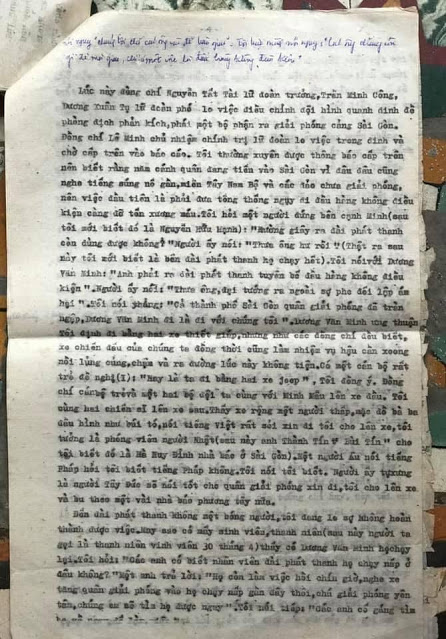 Lúc này đồng chí Nguyễn Tất Tài lữ đoàn trưởng, Trần Minh Công,
Dương Xuân Tụ lữ đoàn phó lo việc điều chỉnh đội hình quanh dinh để
phòng địch phản kích, phái một bộ phận ra giải phóng cảng Sài Gòn.
Đồng chí Lê Minh chủ nhiệm chính trị lữ đoàn lo việc trong dinh và
chờ cấp trên vào báo cáo. Tôi thường xuyên được thông báo cấp trên
nên biết rằng năm cánh quân đang tiến vào Sài Gòn vì đâu đâu cũng
nghe tiếng súng nổ gần, miền Tây Nam Bộ và các đảo chưa giải phóng,
nên việc đầu tiên là phải đưa tổng thống ngụy đi đầu hàng không điều
kiện càng đỡ tổn xương máu. Tôi hỏi một người đứng bên cạnh Minh (sau
tôi mới biết đó là Nguyễn Hữu Hạnh): "Đường giây ra đài phát thanh
còn dùng được không?" Người ấy nói: "Thưa ông hư rồi" (Thật ra sau
này tôi mới biết là bên đài phát thanh họ chạy hết). Tôi nói với Dương
Văn Minh: "Anh phải ra đài phát thanh tuyên bố đầu hàng không điều
kiện". Người ấy nói: "Thưa ông, đại tướng ra ngoài sợ phe đối lập ám
hại". Tôi nói phắng: "Cả thành phố Sài Gòn quân giải phóng đã tràn
ngập, Dương Văn Minh đi là đi với chúng tôi". Dương Văn Minh ưng thuận
Tôi định đi bằng hai xe thiết giáp, nhưng như các đồng chí đều biết,
xe chiến đấu của chúng ta đồng thời cũng làm nhiệm vụ hậu cần xoong
nồi lủng củng, chậm và ra đường lúc này không tiện. Có một cán bộ rất
trẻ đề nghị (1): "Hay là ta đi bằng hai xe jeep", Tôi đồng ý. Đồng
chí cán bộ trẻ và một bộ đội ta cùng với Minh Mẫu lên xe đầu. Tôi
cùng hai chiến sĩ lên xe sau. Thấy xe rộng một người thấp, mặc đồ bà ba
đầu hình như búi tó, nói tiếng việt rất sõi xin đi tôi cho lên xe, tôi
tưởng là phóng viên người Nhật (sau này anh Thành Tín "Bùi Tín" cho
tôi biết đó là Hà Huy Đỉnh nhà báo ở Sài Gòn). Một người âu nói tiếng
Pháp hỏi tôi biết tiếng Pháp không. Tôi nói tôi biết. Người ấy tự xưng
là người Tây Đức sẽ nói tốt cho quân giải phóng xin đi, tôi cho lên xe
và bu theo một vài nhà báo phương tây nữa.
Đến đài phát thanh không một bóng người, tôi đang lo sợ không hoàn
thành được việc. May sao có mấy sinh viên, thanh niên (sau này người ta
gọi là thanh niên vinh viên 30 tháng 4) thấy có Dương Văn Minh họ chạy
lại. Tôi hỏi: "Các anh có biết nhân viên đài phát thanh họ chạy nấp ở
đâu không?" Một anh trả lời: "Họ còn làm việc hồi chín giờ, nghe xe
tăng quân giải phóng vào họ chạy nấp gần đây thôi, chú giải phóng yên
tâm, chúng em sẽ tìm họ được ngay". Tôi nói tiếp: "Các anh cố gắng tìm